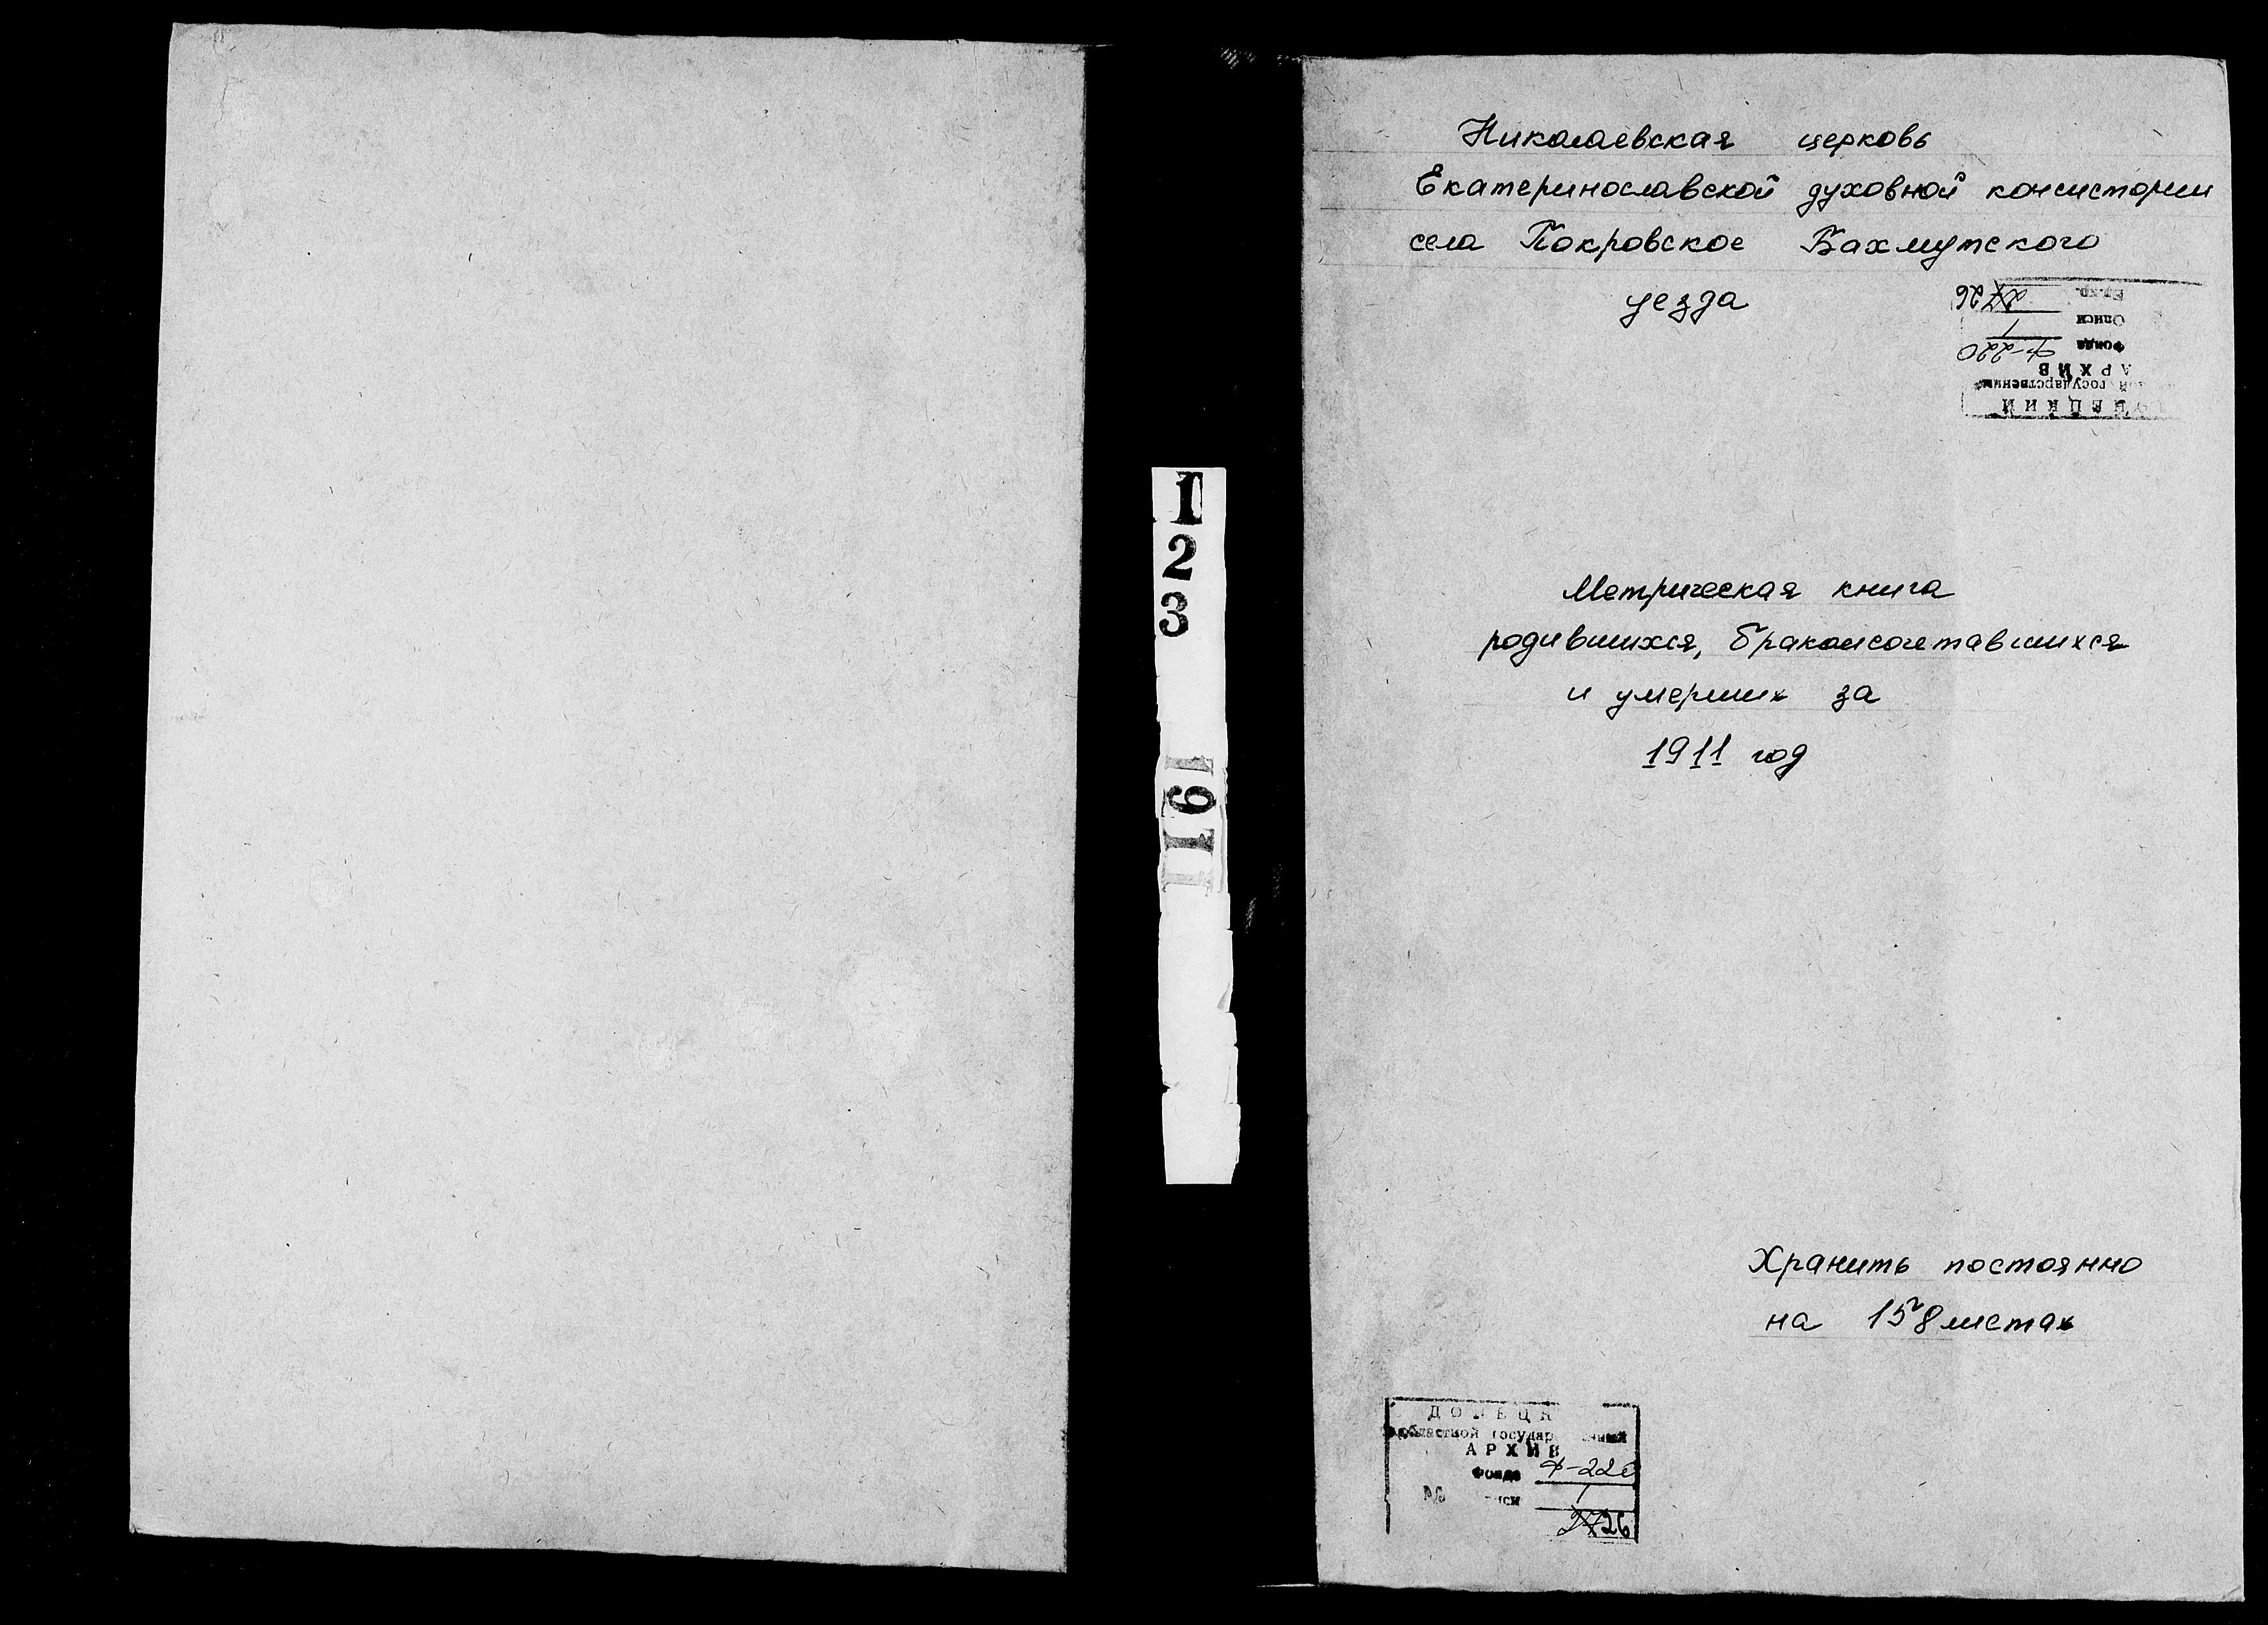 Николаевская церковь
Екатеринославской духовной консистории
села Покровское Бахмутского
уезда
Ед.хр. 27 26
Описи 1
Фонда Ф-220
АРХИВ
государственный
ДОНЕЦКИЙ
1
2
3
1911
Метрическая книга
родившихся, бракоисочетавшихся
и умерших за
1911 год
Хранить постоянно
на 158 листах
ДОНЕЦК
областной государственный
АРХИВ
Фонда Ф-220
№ описи 1
27 26